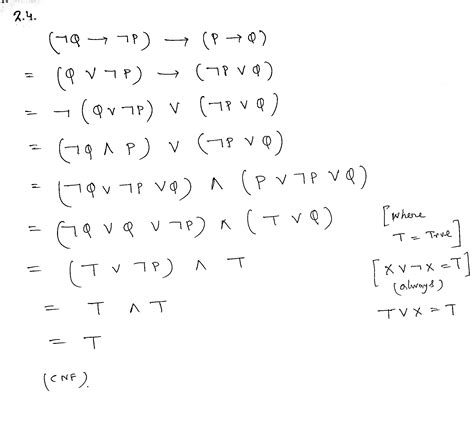 2.4.
(¬Q → ¬P) → (P → Q)
= (Q ∨ ¬P) → (¬P ∨ Q)
= ¬ (Q ∨ ¬P) ∨ (¬P ∨ Q)
= (¬Q ∧ P) ∨ (¬P ∨ Q)
= (¬Q ∨ ¬P ∨ Q) ∧ (P ∨ ¬P ∨ Q)
= (¬Q ∨ Q ∨ ¬P) ∧ (T ∨ Q) [where
T = True]
= (T ∨ ¬P) ∧ T [X ∨ ¬X = T]
(always)
= T ∧ T T ∨ X = T
= T
(CNF).